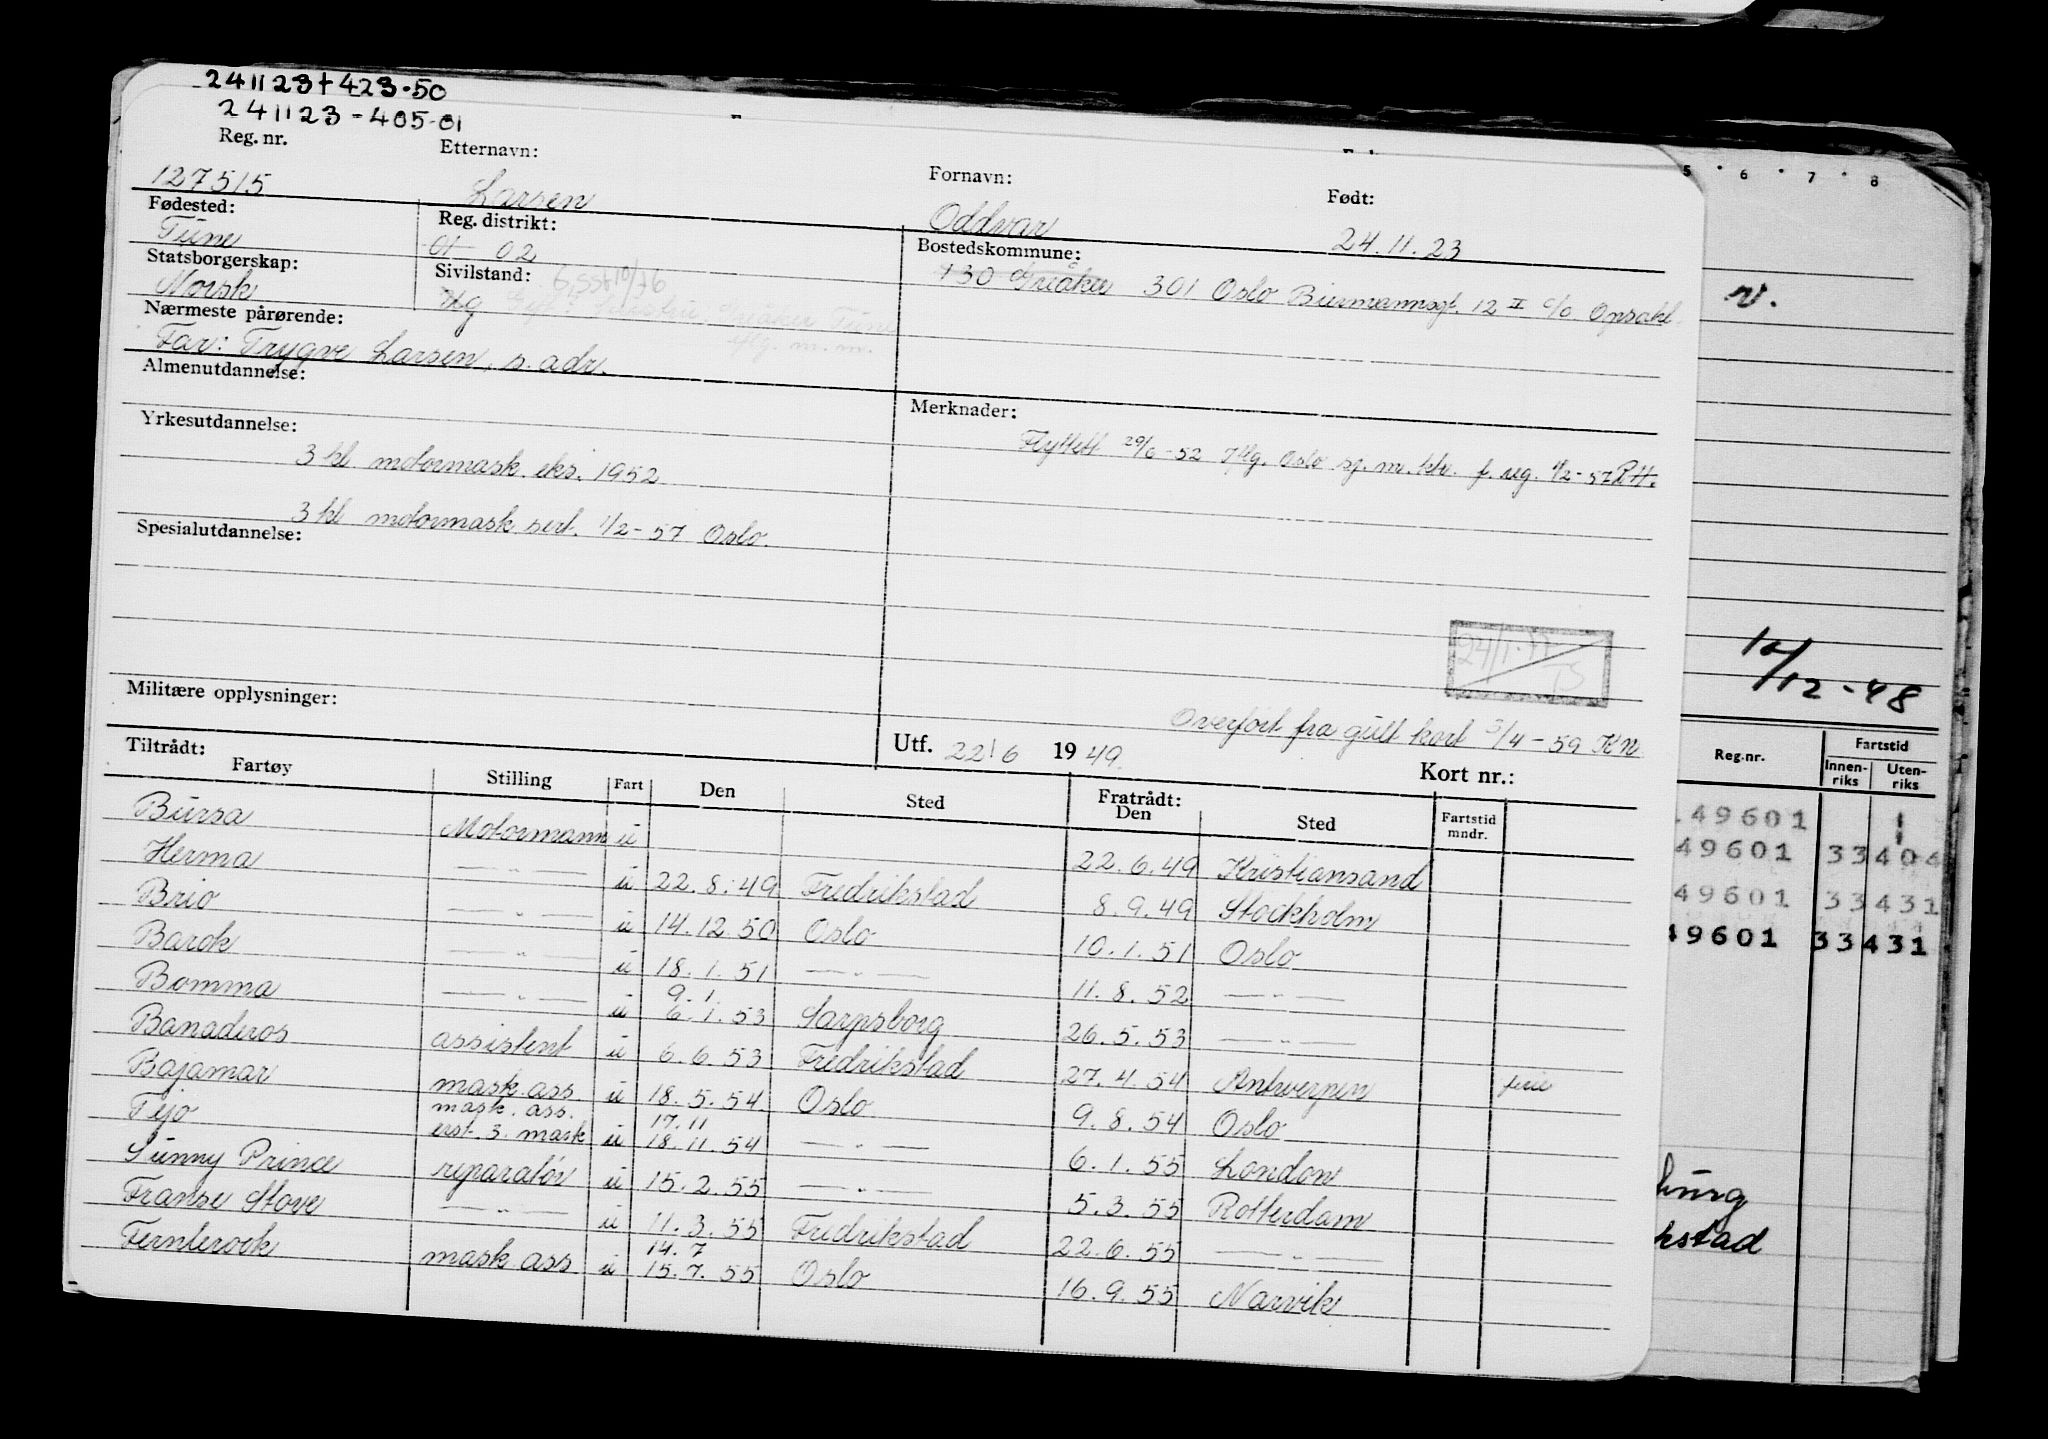 241123+423-50
241123-405-01
Reg. nr. Etternavn: Fornavn: Født:
127515 Larsen Oddvar 24.11.23
Fødested: Reg. distrikt: Bostedskommune:
Tune 01 02 130 Greåker 301 Oslo Biermannsgt. 12 II c/o Opsahl
Statsborgerskap: Sivilstand:
Norsk Ug
Nærmeste pårørende:
Far: Trygve Larsen, s. adr.
Almenutdannelse:
Yrkesutdannelse: Merknader:
3 kl motormask. eks. 1952 Flyttett 29/6-52 Oslo sj. m. ktr. f. reg. 1/2-57 RH.
3 kl motormask sert. 1/2-57 Oslo.
Spesialutdannelse:
Militære opplysninger:
Overført fra gult kort 3/4-59 KN
Utf. 22/6 1949. Kort nr.:
Tiltrådt: Fratrådt:
Fartøy Stilling Fart Den Sted Den Sted Fartstid mndr.
Bursa Motormann u 22.6.49 Kristiansand
Herma —〃— u 22.8.49 Fredrikstad 8.9.49 Stockholm
Brio —〃— u 14.12.50 Oslo 10.1.51 Oslo
Barok —〃— u 18.1.51 —〃— 11.8.52 —〃—
9.1.
Bomma —〃— u 6.1.53 Sarpsborg 26.5.53 —〃—
Banaderos assistent u 6.6.53 Fredrikstad 27.4.54 Antwerpen
Bajamar mask. ass. u 18.5.54 Oslo 9.8.54 Oslo
mask. ass. 17.11
Tejo erst. 3. mask u 18.11.54 —〃— 6.1.55 London
Sunny Prince reparatør u 15.2.55 —〃— 5.3.55 Rotterdam
Franse Stove —〃— u 11.3.55 Fredrikstad 22.6.55 —〃—
14.7
Fernbrook mask ass u 15.7.55 Oslo 16.9.55 Narvik
5 · 6 · 7 · 8
v.
12/12-48
Reg.nr. Fartstid
Innen-riks Uten-riks
49601
49601 33404
49601 33431
49601 33431
burg
kstad